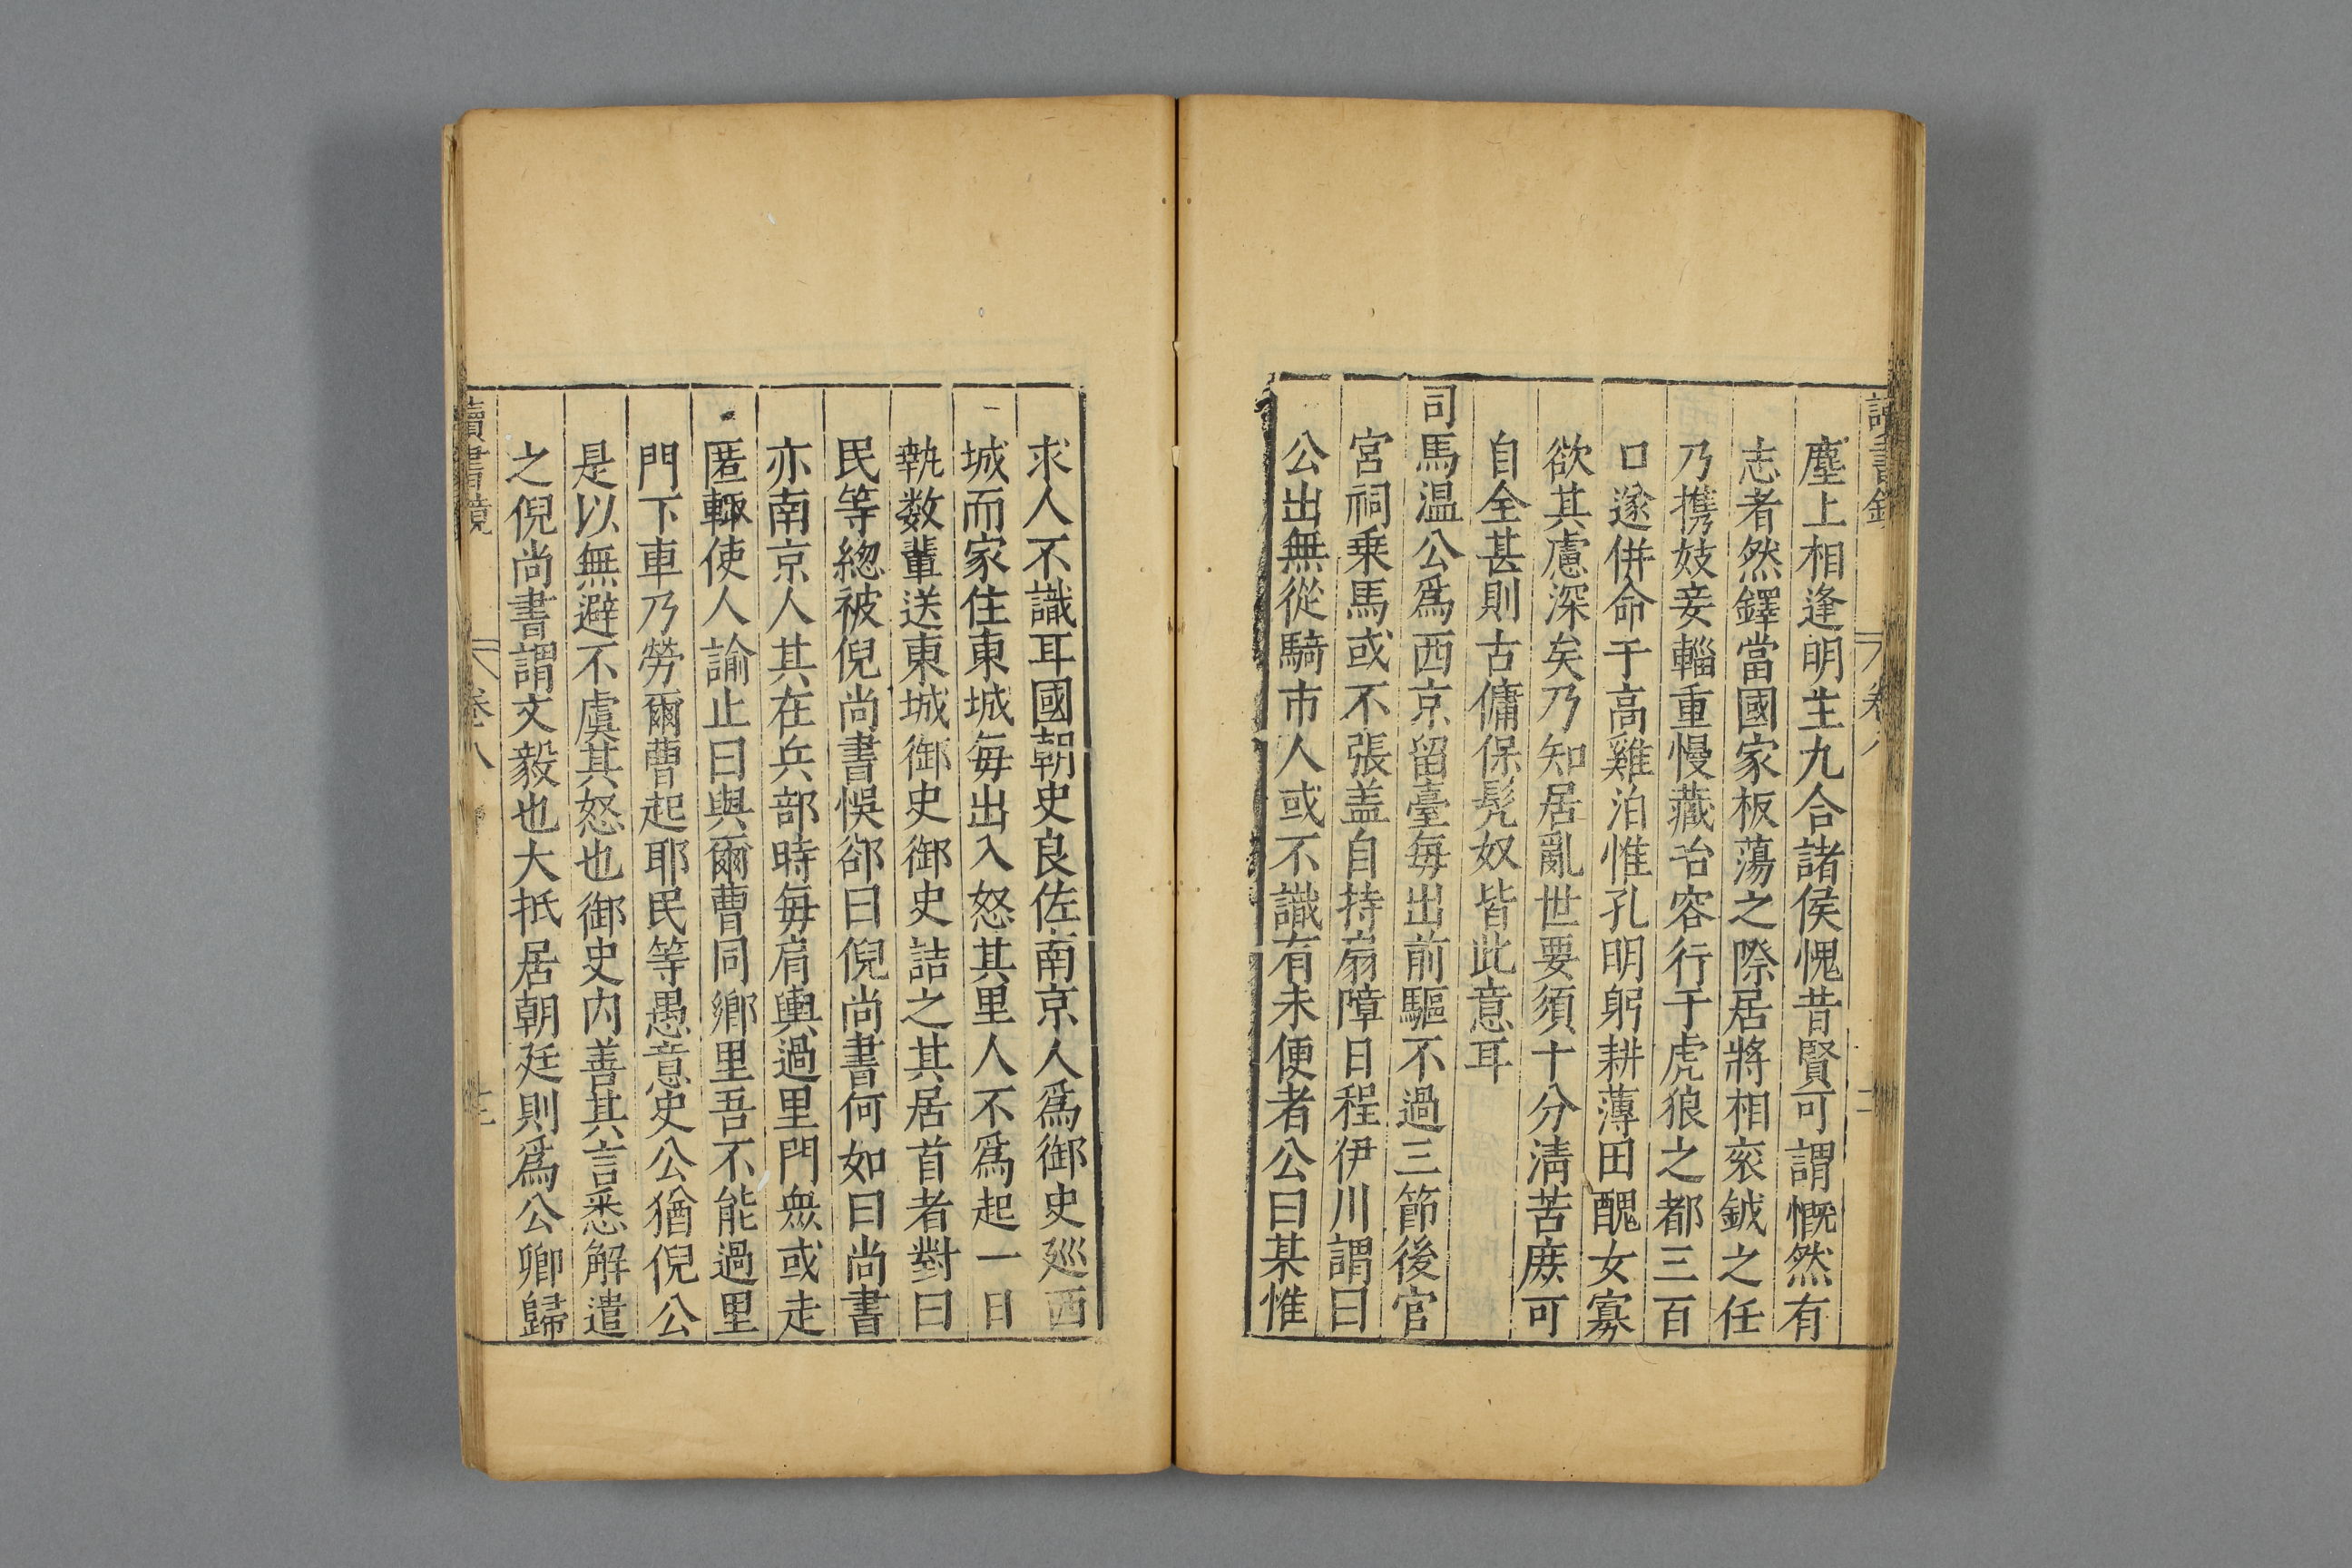 塵上相逢明主九合諸侯愧昔賢可謂慨然有
志者然鐸當國家板蕩之際居將相衮鉞之任
乃携妓妾輜重慢藏冶容行于虎狼之都三百
口遂併命于高雞泊惟孔明躬耕薄田醜女寡
欲其慮深矣乃知居亂世要須十分清苦庶可
自全甚則古傭保髡奴皆此意耳
司馬温公爲西京留臺每出前驅不過三節後官
宮祠乗馬或不張盖自持扇障日程伊川謂曰
公出無從騎市人或不識有未便者公曰某惟
求人不識耳國朝史良佐南京人爲御史廵西
城而家住東城每出入怒其里人不爲起一日
執数輩送東城御史御史詰之其居首者對曰
民等緫被倪尚書悞卻曰倪尚書何如曰尚書
亦南京人其在兵部時每肩輿過里門衆或走
匿輙使人諭止曰與爾曹同鄉里吾不能過里
門下車乃勞爾曹起耶民等愚意史公猶倪公
是以無避不虞其怒也御史内善其言悉解遣
之倪尚書謂文毅也大抵居朝廷則爲公卿歸
讀書鏡
卷八